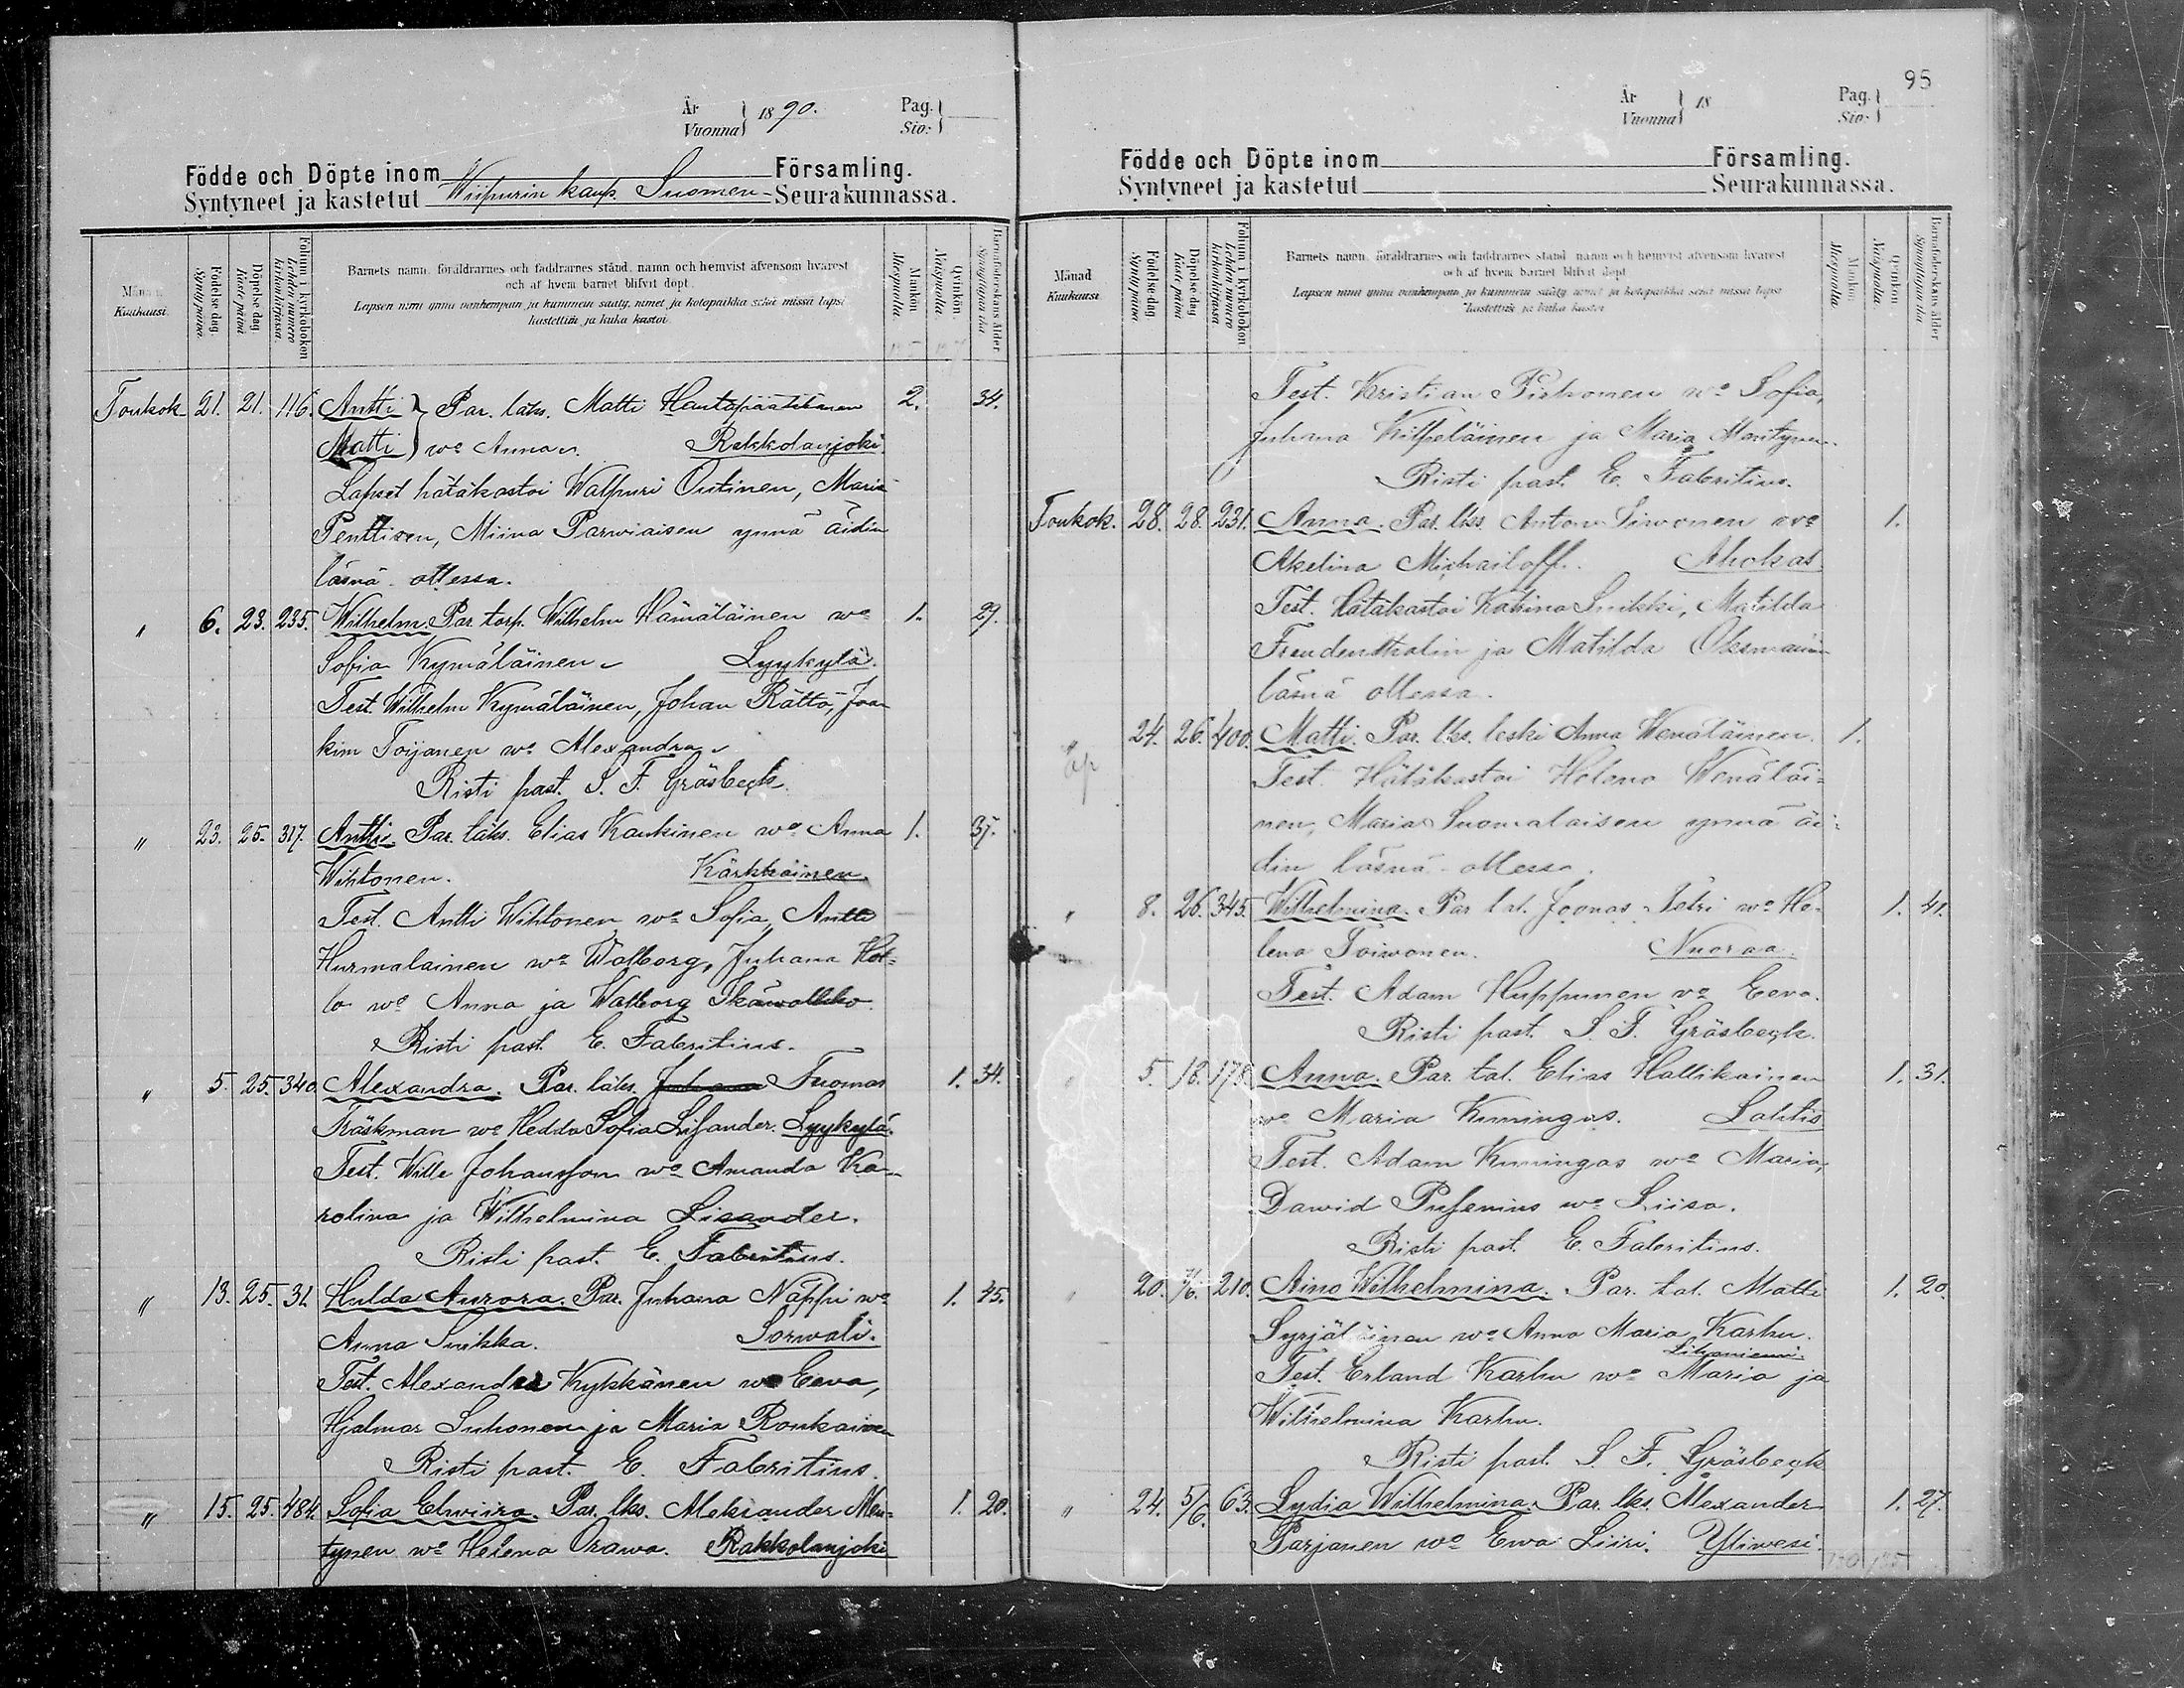 År
Vuonna } 1890.
Pag.
Sio:
Födde och Döpte inom Församling.
Syntyneet ja kastetut Wiipurin kaup. Suomen Seurakunnassa.
Månad
Kuukausi.
Födelse dag.
Synty päivä.
Döpelse dag
Kaste päivä
Folium i kyrkoboken
Lehden numero
kirkonkirjassa
Barnets namn, föräldrarnes och faddrarnes stånd, namn och hemvist äfvensom hvarest
och af hvem barnet blifvit döpt.
Lapsen nimi ynnä vanhempain ja kummein sääty, nimet ja kotopaikka sekä missä lapsi
kastettiin ja kuka kastoi
Mankön
Miespuolia.
Qvinkön
Naispuolia.
Barnaföderskans ålder
Synnyttäjän ikä
Toukok 21. 21. 116. Antti } Par. läks. Matti Hautapäätikainen 2. 34.
Matti } wo Anna. Rakkolanjoki.
Lapset hätäkastoi Walpuri Outinen, Maria
Penttisen, Miina Parwiaisen ynnä äidin
läsnä ollessa.
" 6. 23. 235. Wilhelm. Par. torp. Wilhelm Hämäläinen wo 1. 29.
Sofia Kymäläinen Lyykylä.
Test. Wilhelm Kymäläinen, Johan Rättö, Joa-
kim Toijanen wo Alexandra
Risti past. S. F. Gräsbeck.
" 23. 25. 317. Antti. Par. läks. Elias Kaukinen wo Anna 1. 37.
Wihtonen. Kärkkäinen.
Test. Antti Wihtonen wo Sofia, Antti
Hurmalainen wo Walborg, Juhana Hot-
lo wo Anna ja Walborg Ikäwalkko.
Risti past. E. Fabritius.
" 5. 25. 340. Alexandra. Par. läks. Juhana Tuomas 1. 34.
Träskman wo Hedda Sofia Lisander. Lyykylä.
Test. Wille Johansson wo Amanda Ka-
rolina ja Wilhelmina Lisander.
Risti past. E. Fabritius.
" 13. 25. 31. Hulda Aurora. Par. Juhana Nappi wo 1. 45.
Anna Suikka. Sorwali.
Test. Alexander Kykkänen wo Eeva,
Hjalmar Suhonen ja Maria Ronkainen
Risti past. E. Fabritius.
" 15. 25. 484. Sofia Elwiira. Par. lks. Aleksander Men- 1. 20.
tynen wo Helena Orawa. Rakkolanjoki
95
År
Vuonna } 18
Pag.
Sio:
Födde och Döpte inom Församling.
Syntyneet ja kastetut Seurakunnassa.
Månad
Kuukausi
Födelse dag
Synty päivä
Döpelse dag
Kaste päivä
Folium i kyrkoboken
Lehden numero
kirkonkirjassa
Barnets namn, föräldrarnes och faddrarnes stånd, namn och hemvist äfvensom hvarest
och af hvem barnet blifvit döpt
Lapsen nimi ynnä vanhempain ja kummein sääty, nimet ja kotopaikka sekä missä lapsi
kastettiin ja kuka kastoi
Mankön
Miespuolia.
Qvinkön
Naispuolia.
Barnaföderskans ålder
Synnyttäjän ikä
Test. Kristian Pirhonen wo Sofia,
Juhana Kilpeläinen ja Maria Mentynen.
Risti past. E. Fabritius.
Toukok. 28. 28. 231. Anna. Par. lks. Anton Siwonen wo 1.
Akelina Michailoff. Ahokas
Test. Hätäkastoi Katrina Suikki, Matilda
Freudenthalin ja Matilda Oksmanin
läsnä ollessa.
" 24. 26. 400. Matti. Par. lks. leski Anna Wenäläinen. 1.
äp
Test. Hätäkastoi Helena Wenäläi-
nen, Maria Suomalaisen ynnä äi-
din läsnä ollessa.
" 8. 26. 345. Wilhelmina. Par. tal. Joonas Telri wo He- 1. 41.
lena Toiwonen. Nuoraa.
Test. Adam Huppunen wo Eeva.
Risti past. S. F. Gräsbeck.
" 5. 18. 178 Anna. Par. tal. Elias Hallikainen 1. 31.
wo Maria Kuningas. Lahtis
Test. Adam Kuningas wo Maria,
Dawid Pusenius wo Liisa.
Risti past. E. Fabritius.
" 20. 7/6. 210. Aino Wilhelmina. Par. tal. Matti 1. 20.
Syrjäläinen wo Anna Maria Karhu.
Lihaniemi.
Test. Erland Karhu wo Maria ja
Wilhelmina Karhu.
Risti past. S. F. Gräsbeck
" 24. 5/6. 63. Lydia Wilhelmina. Par. lks. Alexander 1. 27.
Parjanen wo Ewa Liiri. Yliwesi.